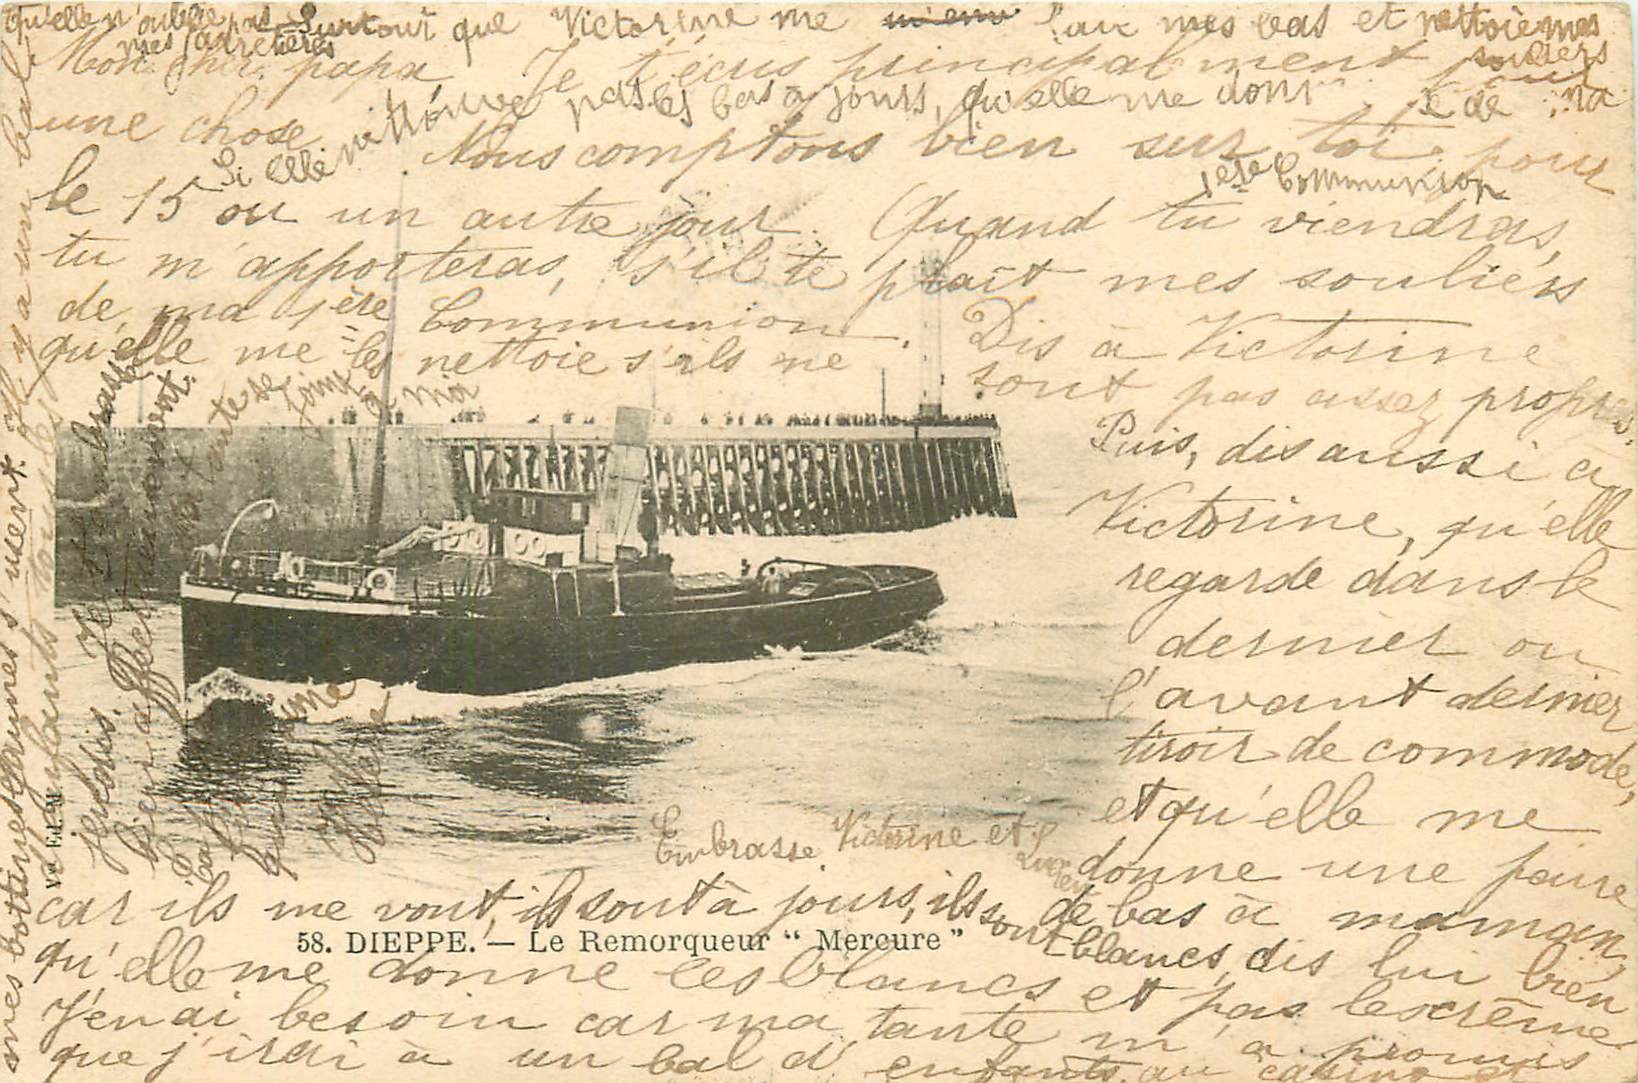 qu'elle n'oublie pas Surtout que Victorine me lave mes bas et nettoie mes souliers
mes jarretières
Mon cher papa, Je t'écris principalement pour
une chose Nous comptons bien sur toi pour
Si elle ne trouve pas les bas à jours, qu'elle me donne de ma
1ère Communion
le 15 ou un autre jour. Quand tu viendras,
tu m'apporteras, s'il te plaît mes souliers
de ma 1ère Communion. Dis à Victorine
qu'elle me les nettoie s'ils ne sont pas assez propres.
Puis, dis aussi à
Victorine, qu'elle
regarde dans le
dernier ou
l'avant dernier
tiroir de commode,
et qu'elle me
donne une paire
de bas à maman,
car ils me vont, ils sont à jours, ils sont blancs, dis lui bien
qu'elle me donne les blancs et pas les crème
J'en ai besoin car ma tante m'a promis
que j'irai à un bal d'enfants, au casino et
mes bottines jaunes s'usent. Il y a un bal
d'enfants tous les
jeudis. Je t'embrasse
bien affectueusement.
ma tante se joint à moi
Embrasse Victorine et Lucien
58. DIEPPE. — Le Remorqueur " Mercure "